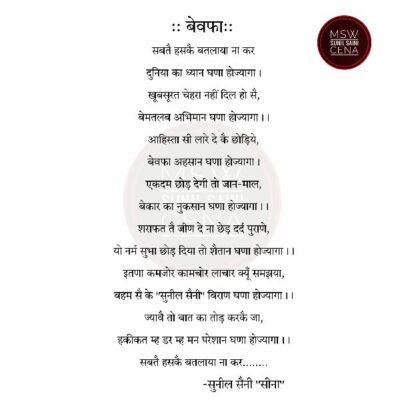 :: बेवफा::
MSW
SUNIL SAINI
CENA
सबतै हसकै बतलाया ना कर
दुनिया का ध्यान घणा होज्यागा।
खूबसूरत चेहरा नहीं दिल हो सै,
बेमतलब अभिमान घणा होज्यागा।।
आहिस्ता सी लारे दे कै छोड़िये,
बेवफा अहसान घणा होज्यागा।
एकदम छोड़ देगी तो जान-माल,
बेकार का नुकसान घणा होज्यागा।।
शराफत तै जीण दे ना छेड़ दर्द पुराणे,
यो नर्म सुभा छोड़ दिया तो शैतान घणा होज्यागा।।
इतणा कमजोर कामचोर लाचार क्यूँ समझया,
बहम सै के "सुनील सैनी" बिराण घणा होज्यागा।।
ज्यावै तो बात का तोड़ करकै जा,
हकीकत म्ह डर म्ह मन परेशान घणा होज्यागा।।
सबतै हसकै बतलाया ना कर........
-सुनील सैनी "सीना"
MSW
SUNIL SAINI
CENA